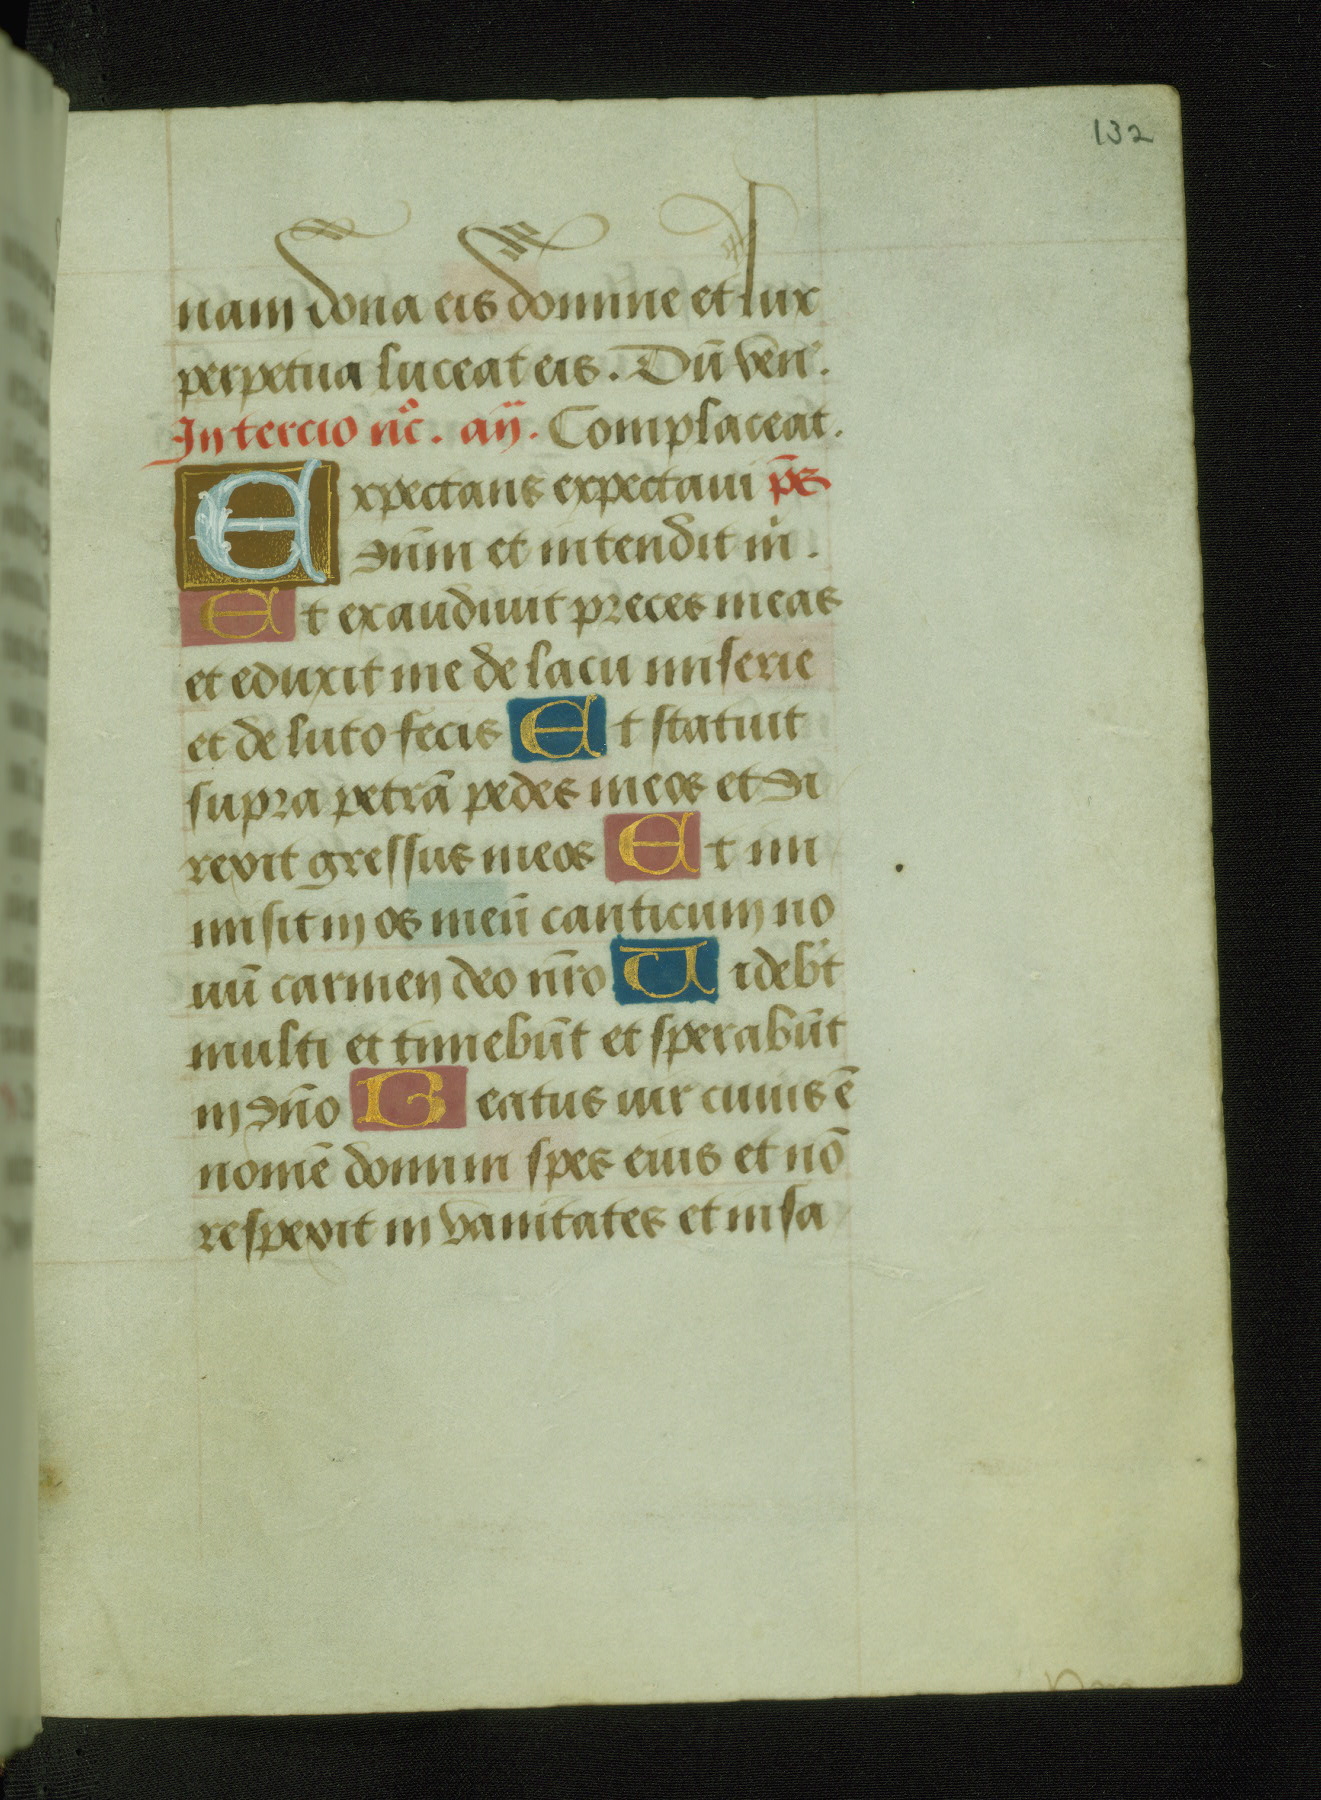 132
nam dona eis domine et lux
perpetua luceat eis. Dū ven̄.
In tercio nc̄. añ. Complaceat.
Expectans expectaui ps̄
dn̄m et intendit m̄.
Et exaudiuit preces meas
et eduxit me de lacu miserie
et de luto fecis Et statuit
supra petrā pedes meos et di
rexit gressus meos Et im
misit in os meū canticum no
uū carmen deo nr̄o Uideb̄t
multi et timebūt et sperabūt
in dn̄o Beatus uir cuius ē
nomē domini spes eius et nō
respexit in vanitates et insa